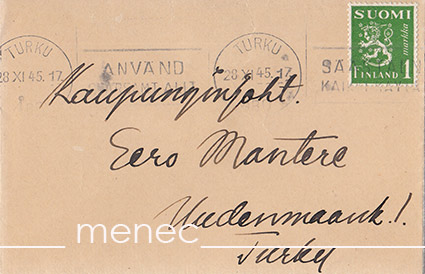 SUOMI
markka
FINLAND 1
TURKU
28 XI 45. 17
ANVÄND
TURKU
28 XI 45. 17
Kaupunginjoht.
Eero Mantere
Uudenmaank. 1.
Turku
menec